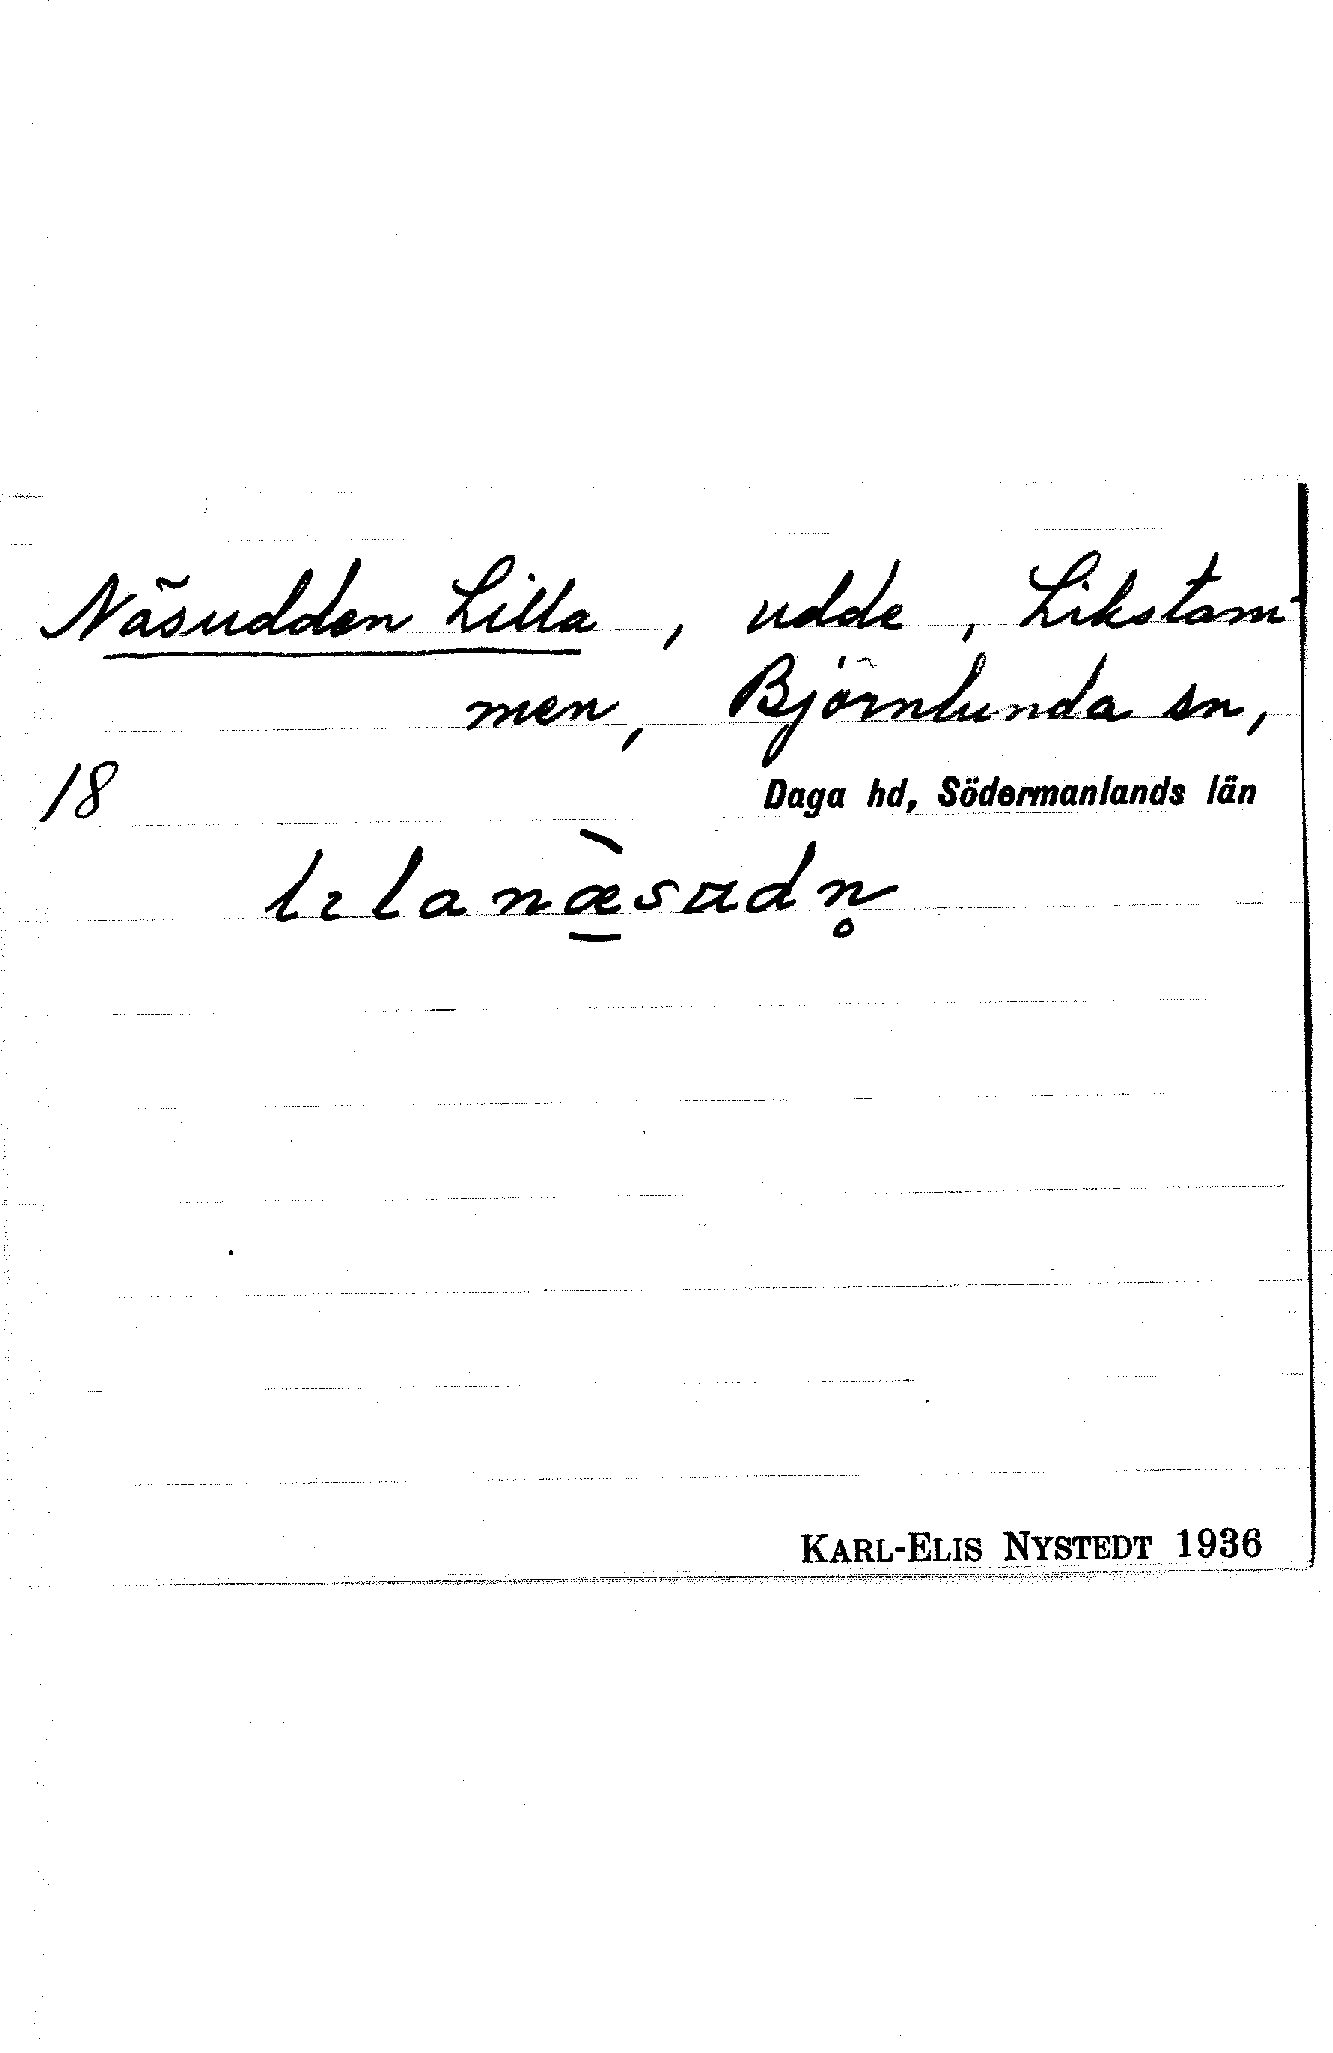 Näsudden Lilla, udde, Likstam-
men, Björnlunda sn,
18 Daga hd, Södermanlands län
lɪlanæ̠̀sudn̥
KARL-ELIS NYSTEDT 1936